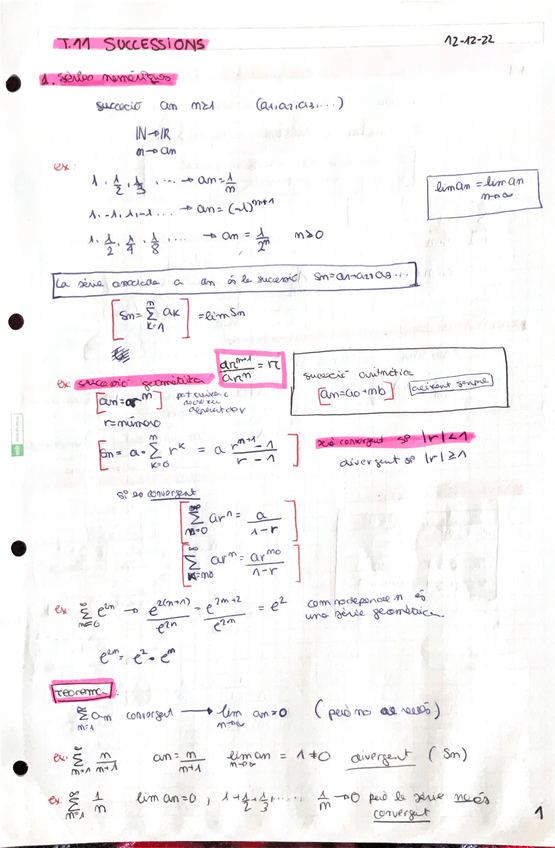 T.11 SUCCESSIONS
12-12-22
1. Sèries numèriques
successió an n≥1 (a1,a2,a3,...)
IN→IR
n→an
ex:
1, 1/2, 1/3, ... → an = 1/n
lim an = lim an
n→∞
1, -1, 1, -1 ... → an = (-1)^(n+1)
1, 1/2, 1/4, 1/8, ... → an = 1/2^n n≥0
La sèrie associada a an és la successió Sn=a1+a2+a3...
[Sn = Σ_{k=1}^{n} ak] = lim Sn
ar^(n+1)/ar^n = r
ex: successió geomètrica
successió aritmètica
[an=ar^n]
pot créixer o
decréixer
depenent de r
[an=a0+nb]
creixent sempre
r=número
[Sn = a·Σ_{k=0}^{n} r^k = a (r^(n+1) - 1)/(r - 1)]
serà convergent si |r|<1
divergent si |r|≥1
Si és convergent
[Σ_{n=0}^{∞} ar^n = a/(1-r)]
[Σ_{n=n0}^{∞} ar^n = ar^n0/(1-r)]
ex: Σ_{n=0}^{∞} e^(2n) → e^(2(n+1))/e^(2n) = e^(2n+2)/e^(2n) = e^2
com no depende n és
una sèrie geomètrica.
e^(2n) = e^2 · e^n
Teorema:
Σ_{n=1}^{∞} an convergent → lim_{n→∞} an=0 (però no al revés)
ex: Σ_{n=1}^{∞} n/(n+1) an = n/(n+1) lim_{n→∞} an = 1≠0 divergent (Sn)
ex: Σ_{n=1}^{∞} 1/n lim an=0, 1+1/2+1/3+..... 1/n →0 però la sèrie no és
convergent
1